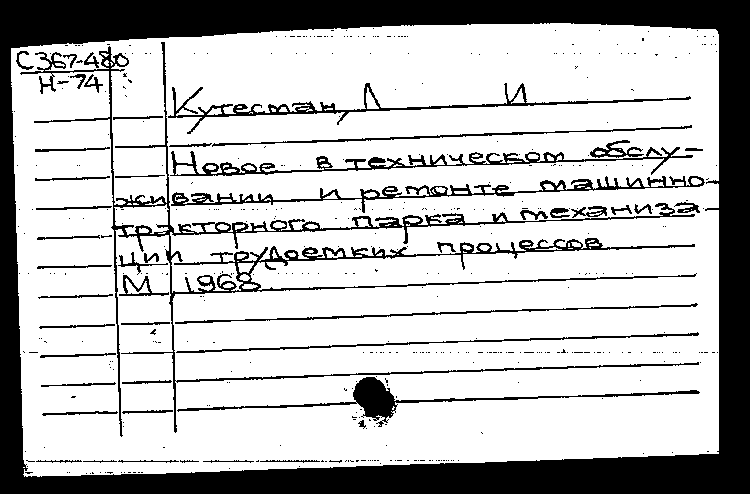 С367-480
Н-74
Кутесман, Л И
Новое в техническом обслу-
живании и ремонте машинно-
тракторного парка и механиза-
ции трудоемких процессов
М 1968